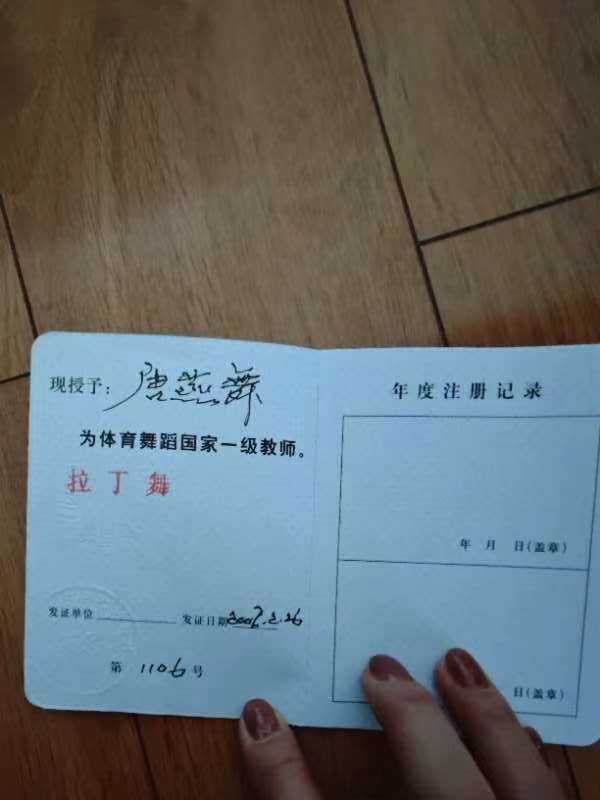 现授予：唐燕舞
为体育舞蹈国家一级教师。
拉丁舞
发证单位 发证日期
第 1106 号
年度注册记录
年 月 日（盖章）
日（盖章）